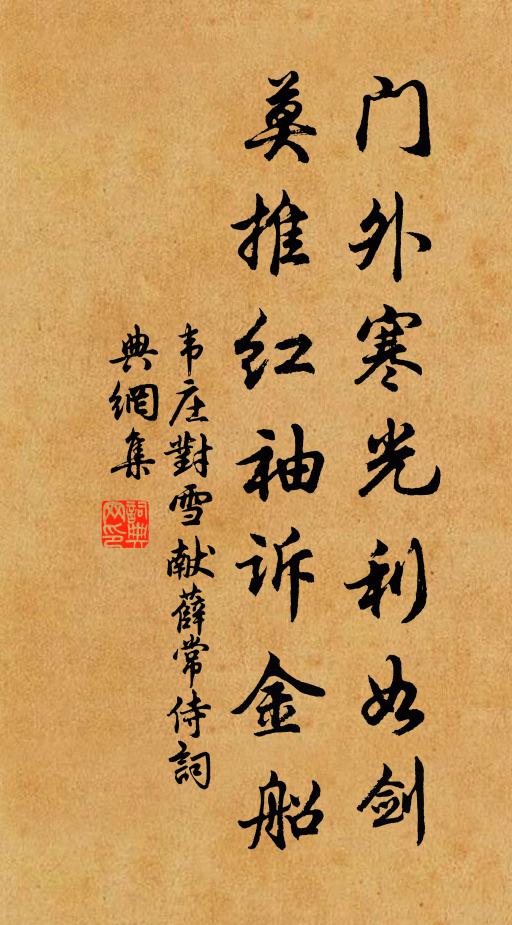 门外寒光利如剑
莫推红袖诉金船
韦庄對雪献薛常侍詞
典網集
詞典网印